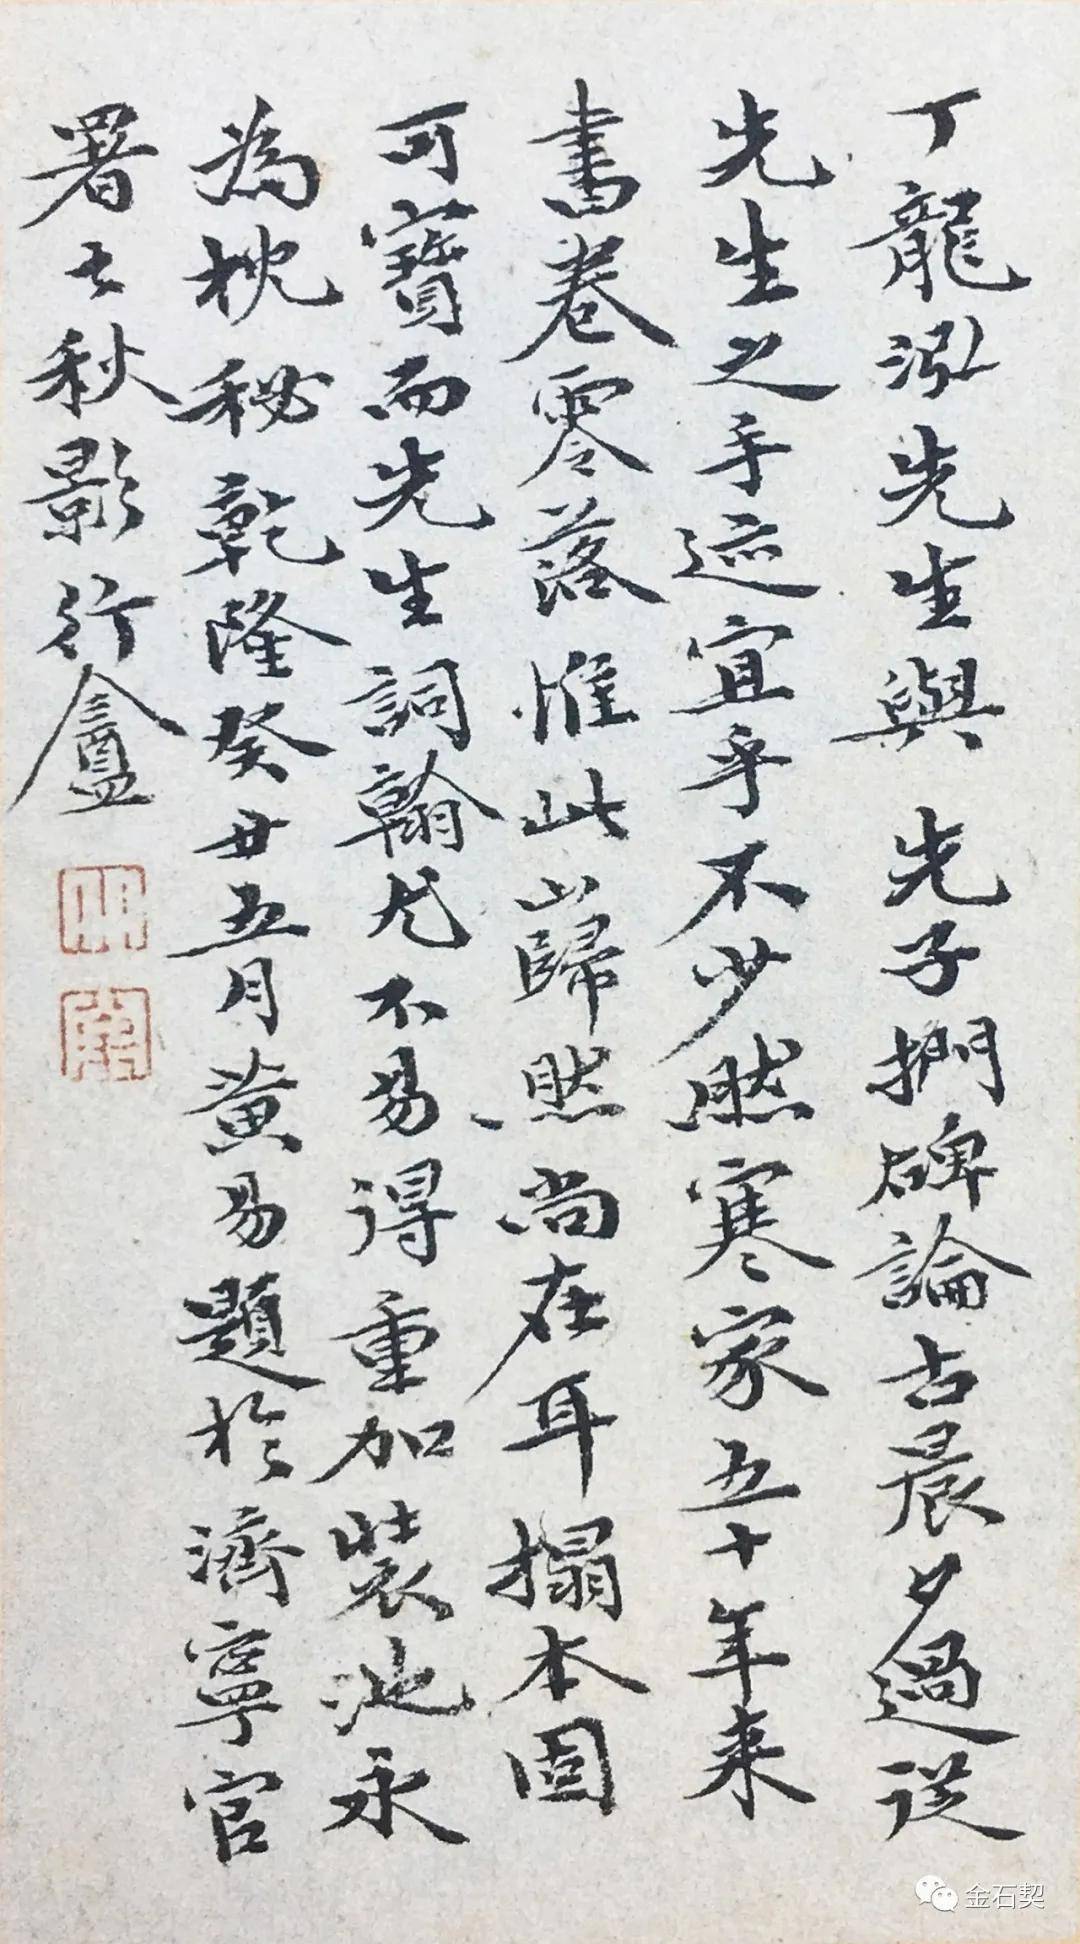 丁龍泓先生與 先子捫碑論古晨夕過從
先生之手迹宜乎不少然寒家五十年来
書卷零落惟此巋然尚在耳搨本固
可寶而先生詞翰尤不易得重加裝池永
為枕秘乾隆癸丑五月黄易題於濟寧官
署之秋影行盦
金石契